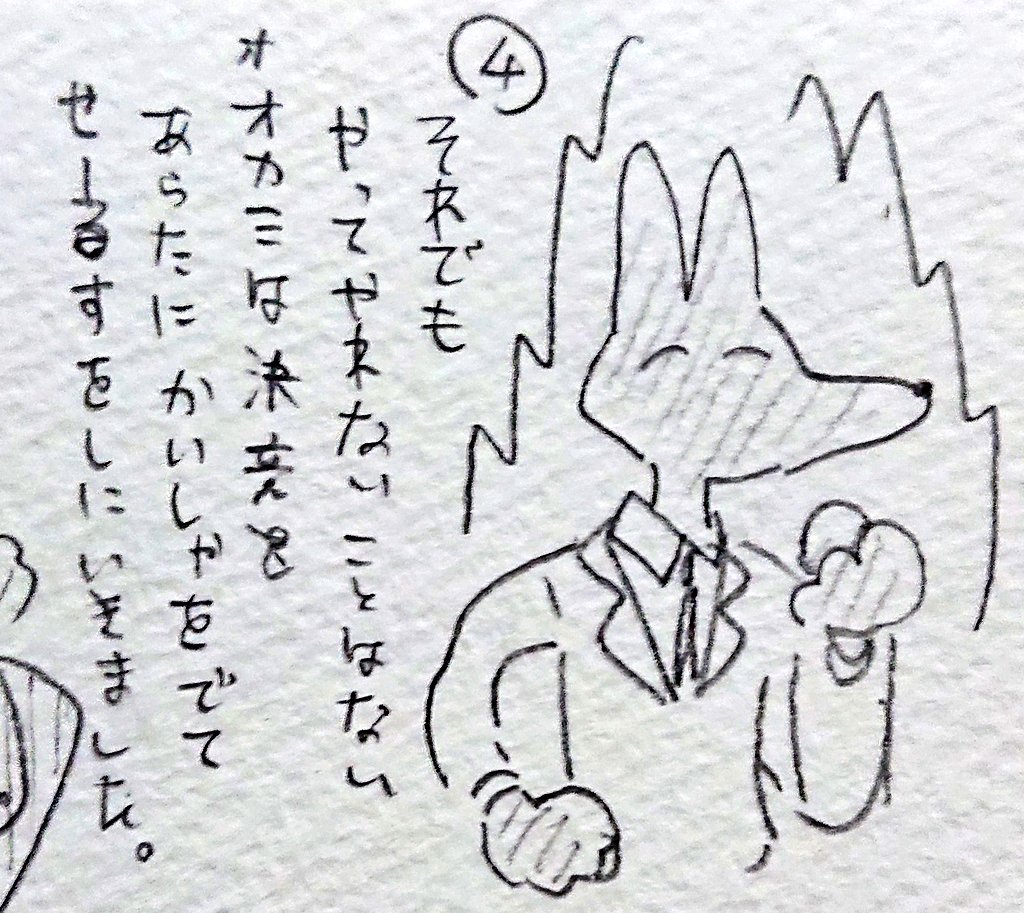 ④
それでも
やってやれないことはない
オオカミは決意を
あらたにかいしゃをでて
せーるすをしにいきました。